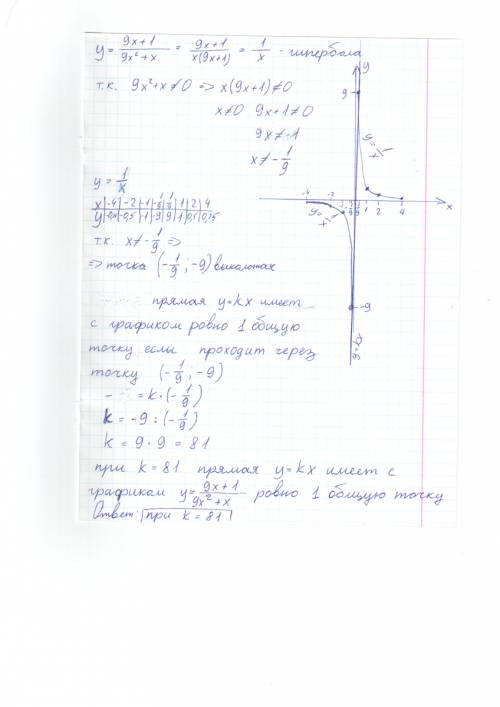 y = (9x+1)/(9x²+x) = (9x+1)/(x(9x+1)) = 1/x - гипербола
т.к. 9x²+x≠0 => x(9x+1)≠0
x≠0 9x+1≠0
9x≠-1
x≠-1/9
y = 1/x
x | -4 | -2 | -1 | -1/9 | 1/9 | 1 | 2 | 4
y | -0,25 | -0,5 | -1 | -9 | 9 | 1 | 0,5 | 0,25
т.к. x≠-1/9 =>
=> точка (-1/9; -9) выколотах
прямая y=kx имеет
с графиком ровно 1 общую
точку если проходит через
точку (-1/9; -9)
- = k·(-1/9)
k = -9 : (-1/9)
k = 9·9 = 81
при k = 81 прямая y=kx имеет с
графиком y=(9x+1)/(9x²+x) ровно 1 общую точку
Ответ: при k = 81
y
9
y=1/x
-4 -2 -1
1 2 4
x
y=1/x
-9
y=kx